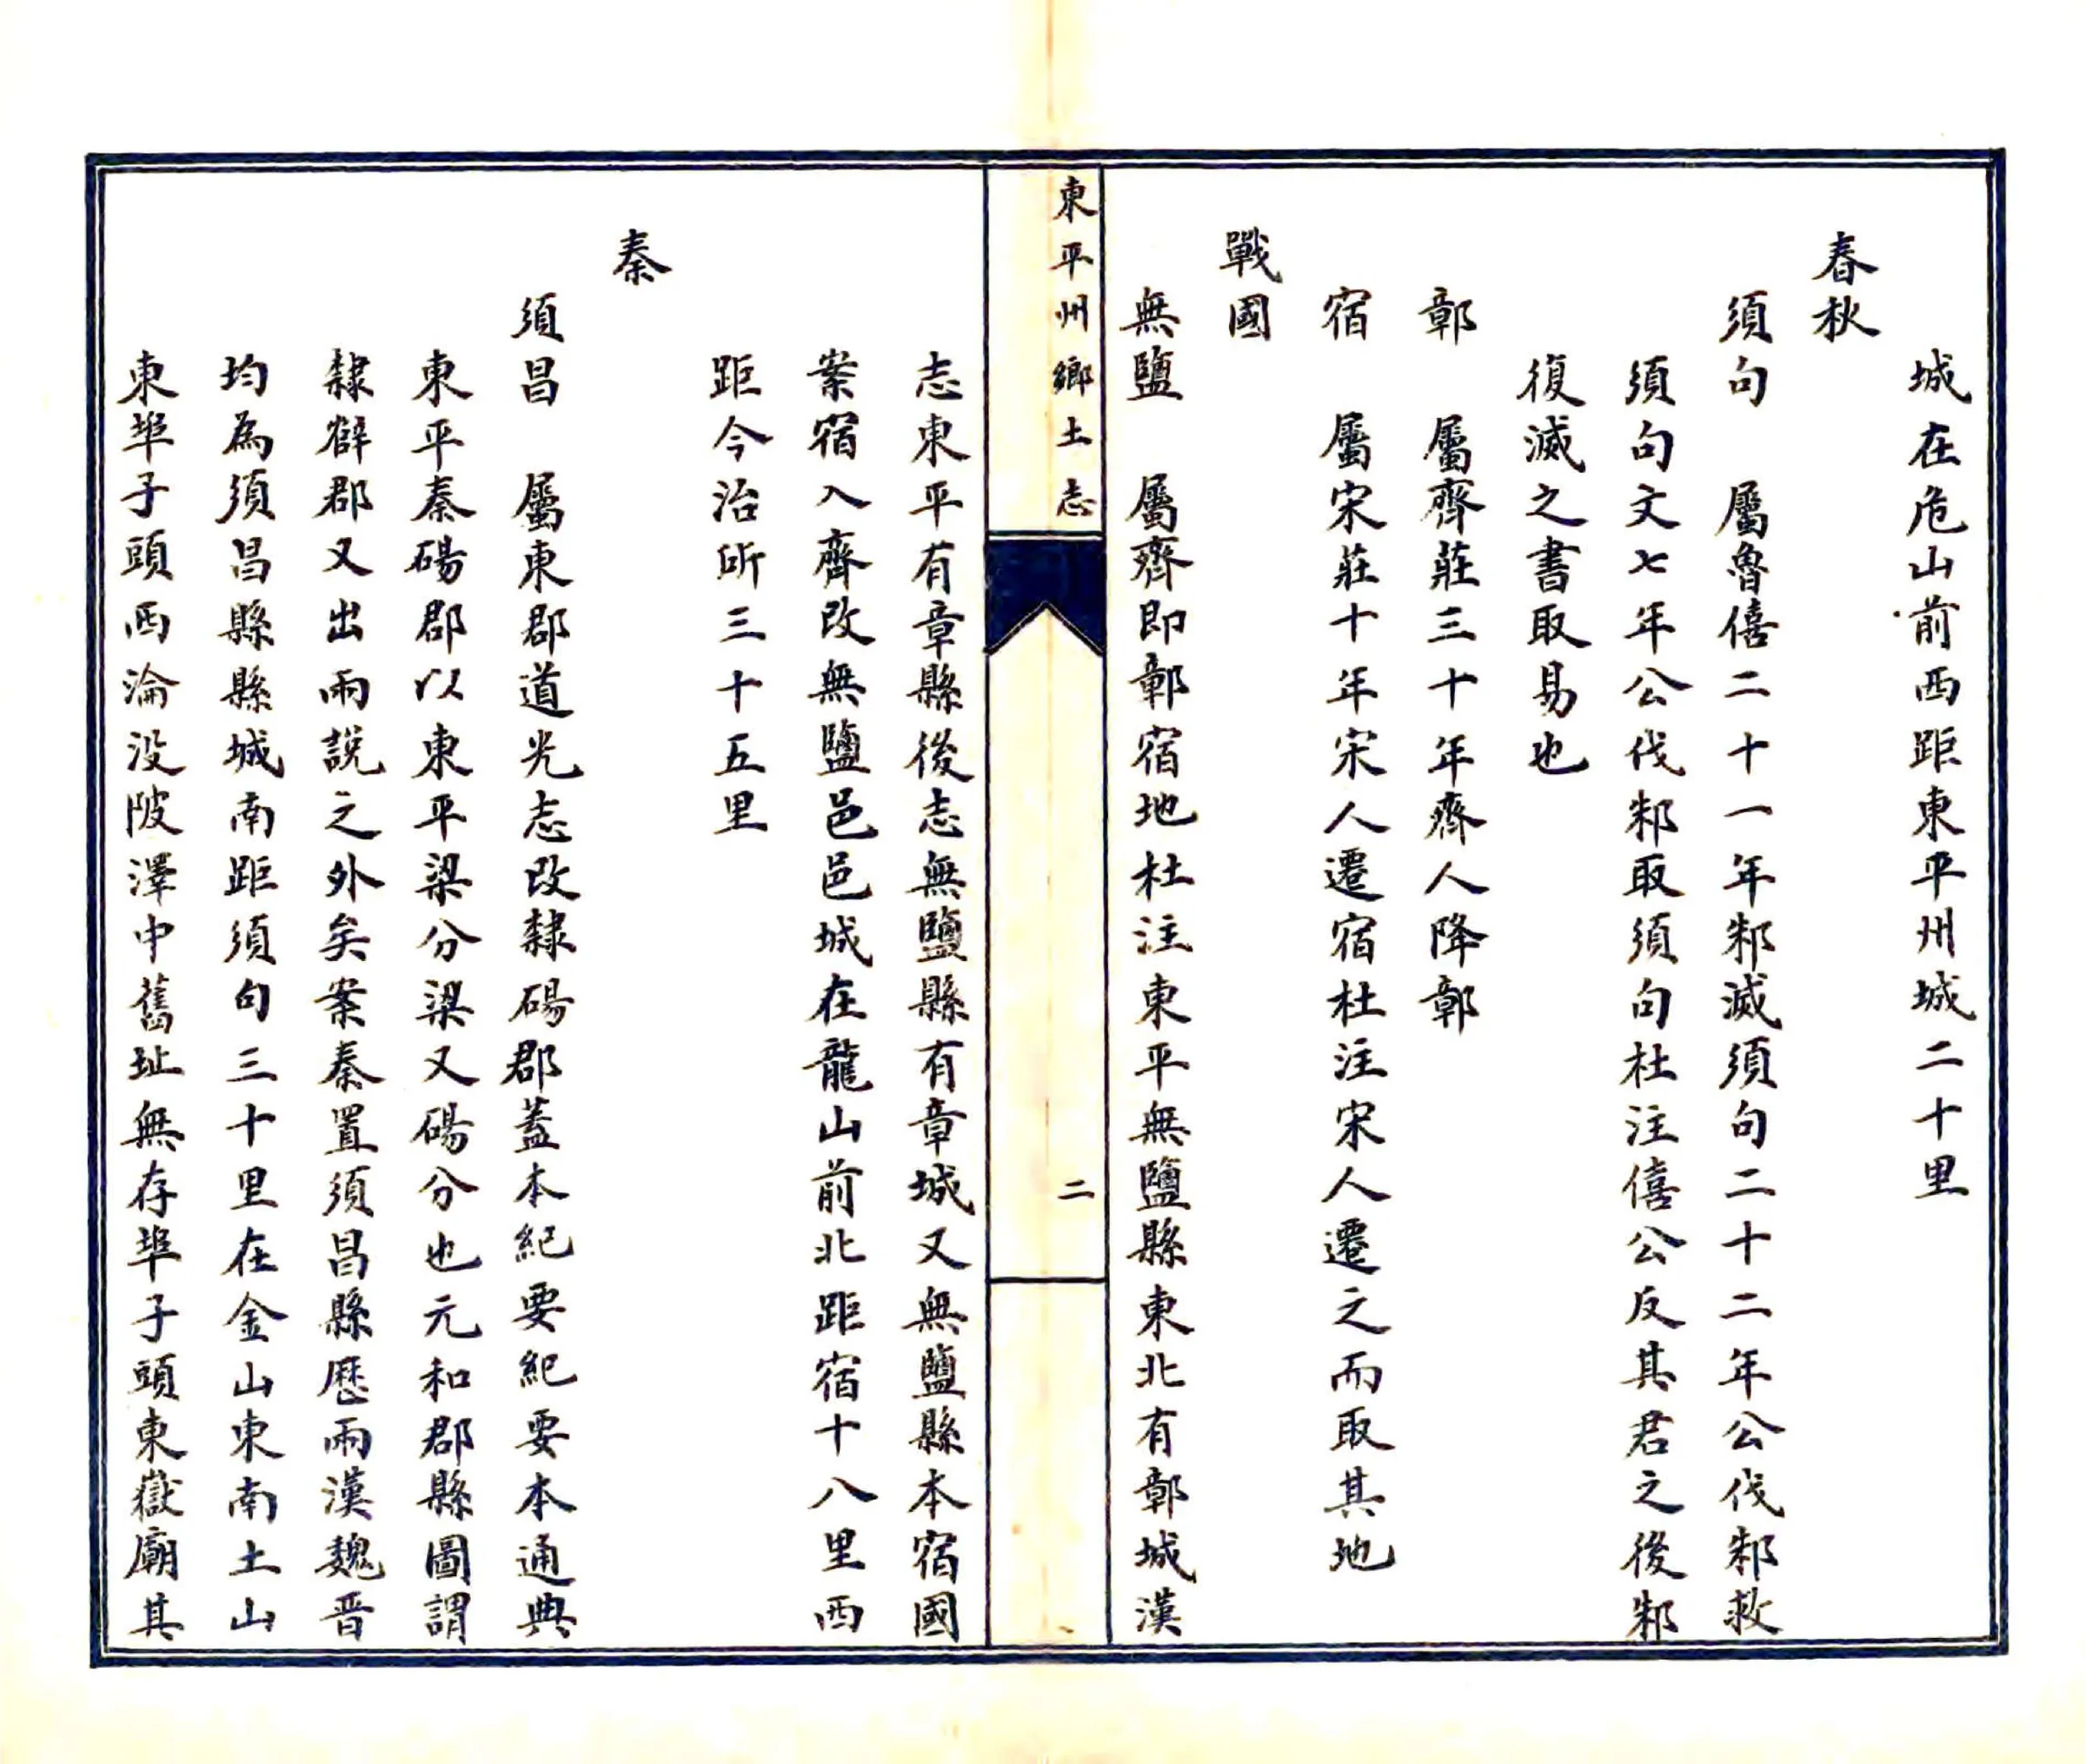 城在危山前西距東平州城二十里
春秋
須句　屬魯僖二十一年邾滅須句二十二年公伐邾救
須句文七年公伐邾取須句杜注僖公反其君之後邾
復滅之書取易也
鄣　屬齊莊三十年齊人降鄣
宿　屬宋莊十年宋人遷宿杜注宋人遷之而取其地
戰國
無鹽　屬齊即鄣宿地杜注東平無鹽縣東北有鄣城漢
東平州鄉土志
二
志東平有章縣後志無鹽縣有章城又無鹽縣本宿國
案宿入齊改無鹽邑邑城在龍山前北距宿十八里西
距今治所三十五里
秦
須昌　屬東郡道光志改隸碭郡蓋本紀要紀要本通典
東平秦碭郡以東平梁分梁又碭分也元和郡縣圖謂
隸薛郡又出兩說之外矣案秦置須昌縣歷兩漢魏晋
均為須昌縣縣城南距須句三十里在金山東南土山
東埠子頭西淪没陂澤中舊址無存埠子頭東嶽廟其